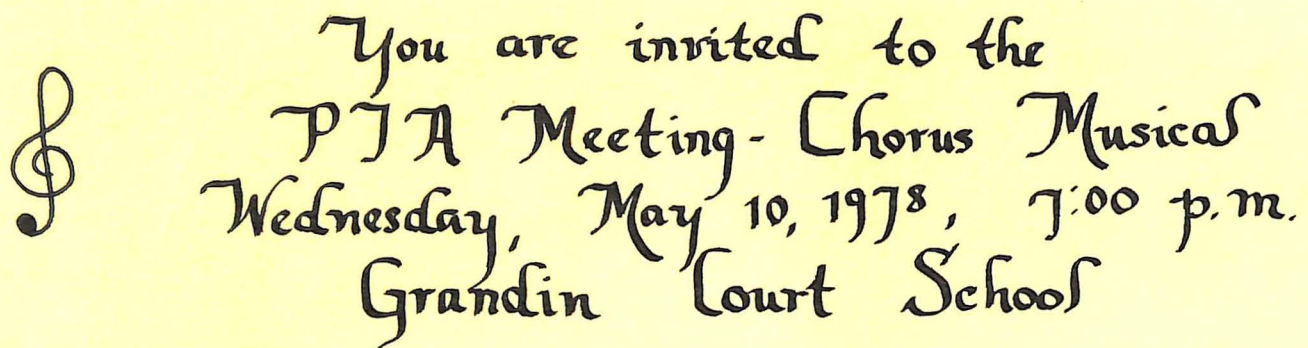 You are invited to the
PTA Meeting - Chorus Musical
Wednesday, May 10, 1978, 7:00 p.m.
Grandin Court School